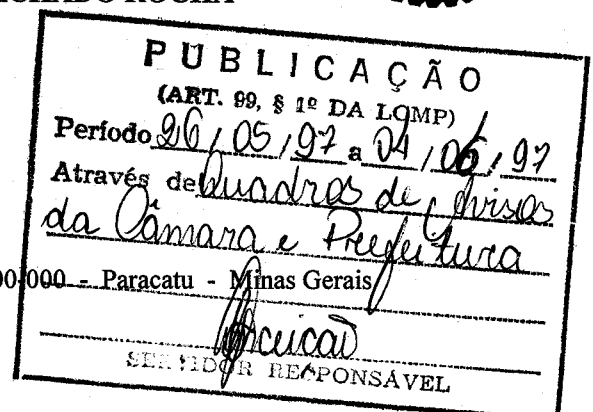 PUBLICAÇÃO
(ART. 99, § 1º DA LOMP)
Período 26/05/97 a 04/06/97
Através de Quadros de Avisos
da Câmara e Prefeitura
000 - Paracatu - Minas Gerais
SERVIDOR RESPONSÁVEL